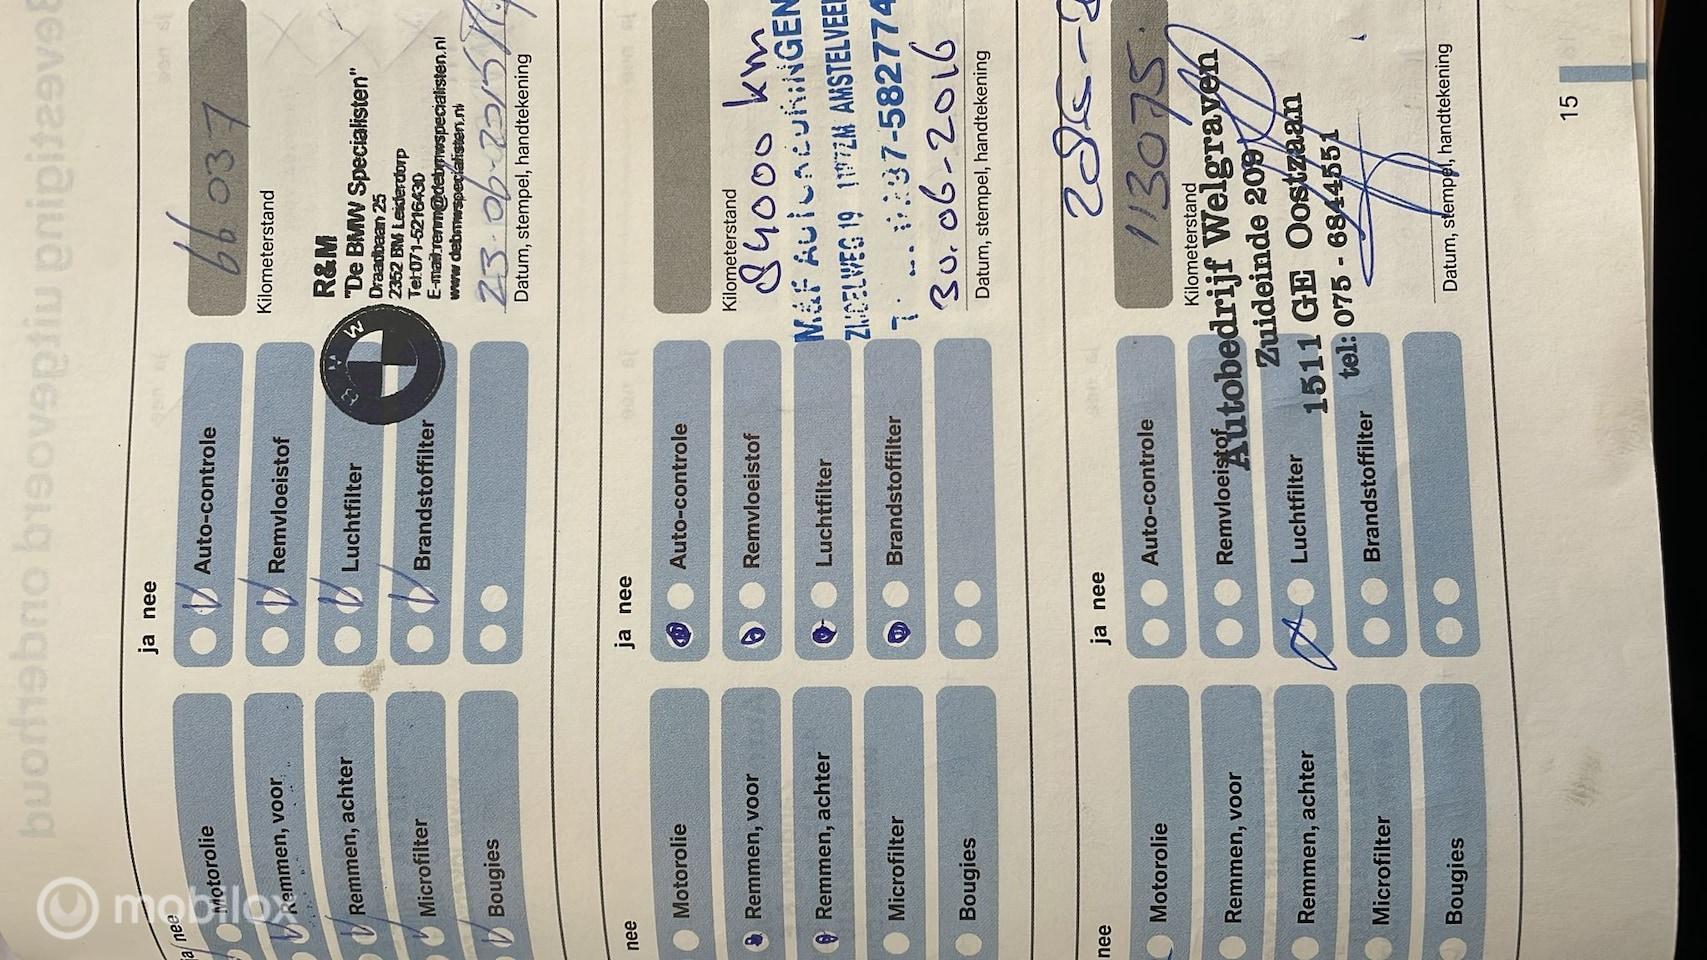 ja nee
Motorolie
Remmen, voor
Remmen, achter
Microfilter
Bougies
ja nee
Auto-controle
Remvloeistof
Luchtfilter
Brandstoffilter
66 037
Kilometerstand
R&M
"De BMW Specialisten"
Draadbaan 25
2352 BM Leiderdorp
Tel:071-5216430
www.debmwspecialisten.nl
23-06-2015
Datum, stempel, handtekening
BMW
nee
Motorolie
Remmen, voor
Remmen, achter
Microfilter
Bougies
ja nee
Auto-controle
Remvloeistof
Luchtfilter
Brandstoffilter
Kilometerstand
84000 km
M&F
AMSTELVEEN
30-06-2016
Datum, stempel, handtekening
nee
Motorolie
Remmen, voor
Remmen, achter
Microfilter
Bougies
ja nee
Auto-controle
Remvloeistof
Luchtfilter
Brandstoffilter
113075
Kilometerstand
Autobedrijf Welgraven
Zuideinde 209
1511 GE Oostzaan
tel: 075 - 6844551
Datum, stempel, handtekening
15
Bevestiging uitgevoerd onderhoud
mobilox